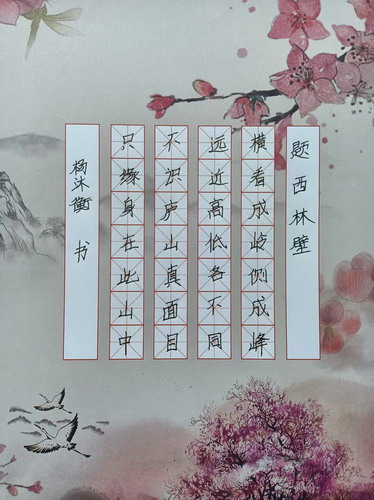 题西林壁
横看成岭侧成峰
远近高低各不同
不识庐山真面目
只缘身在此山中
杨沐衡 书